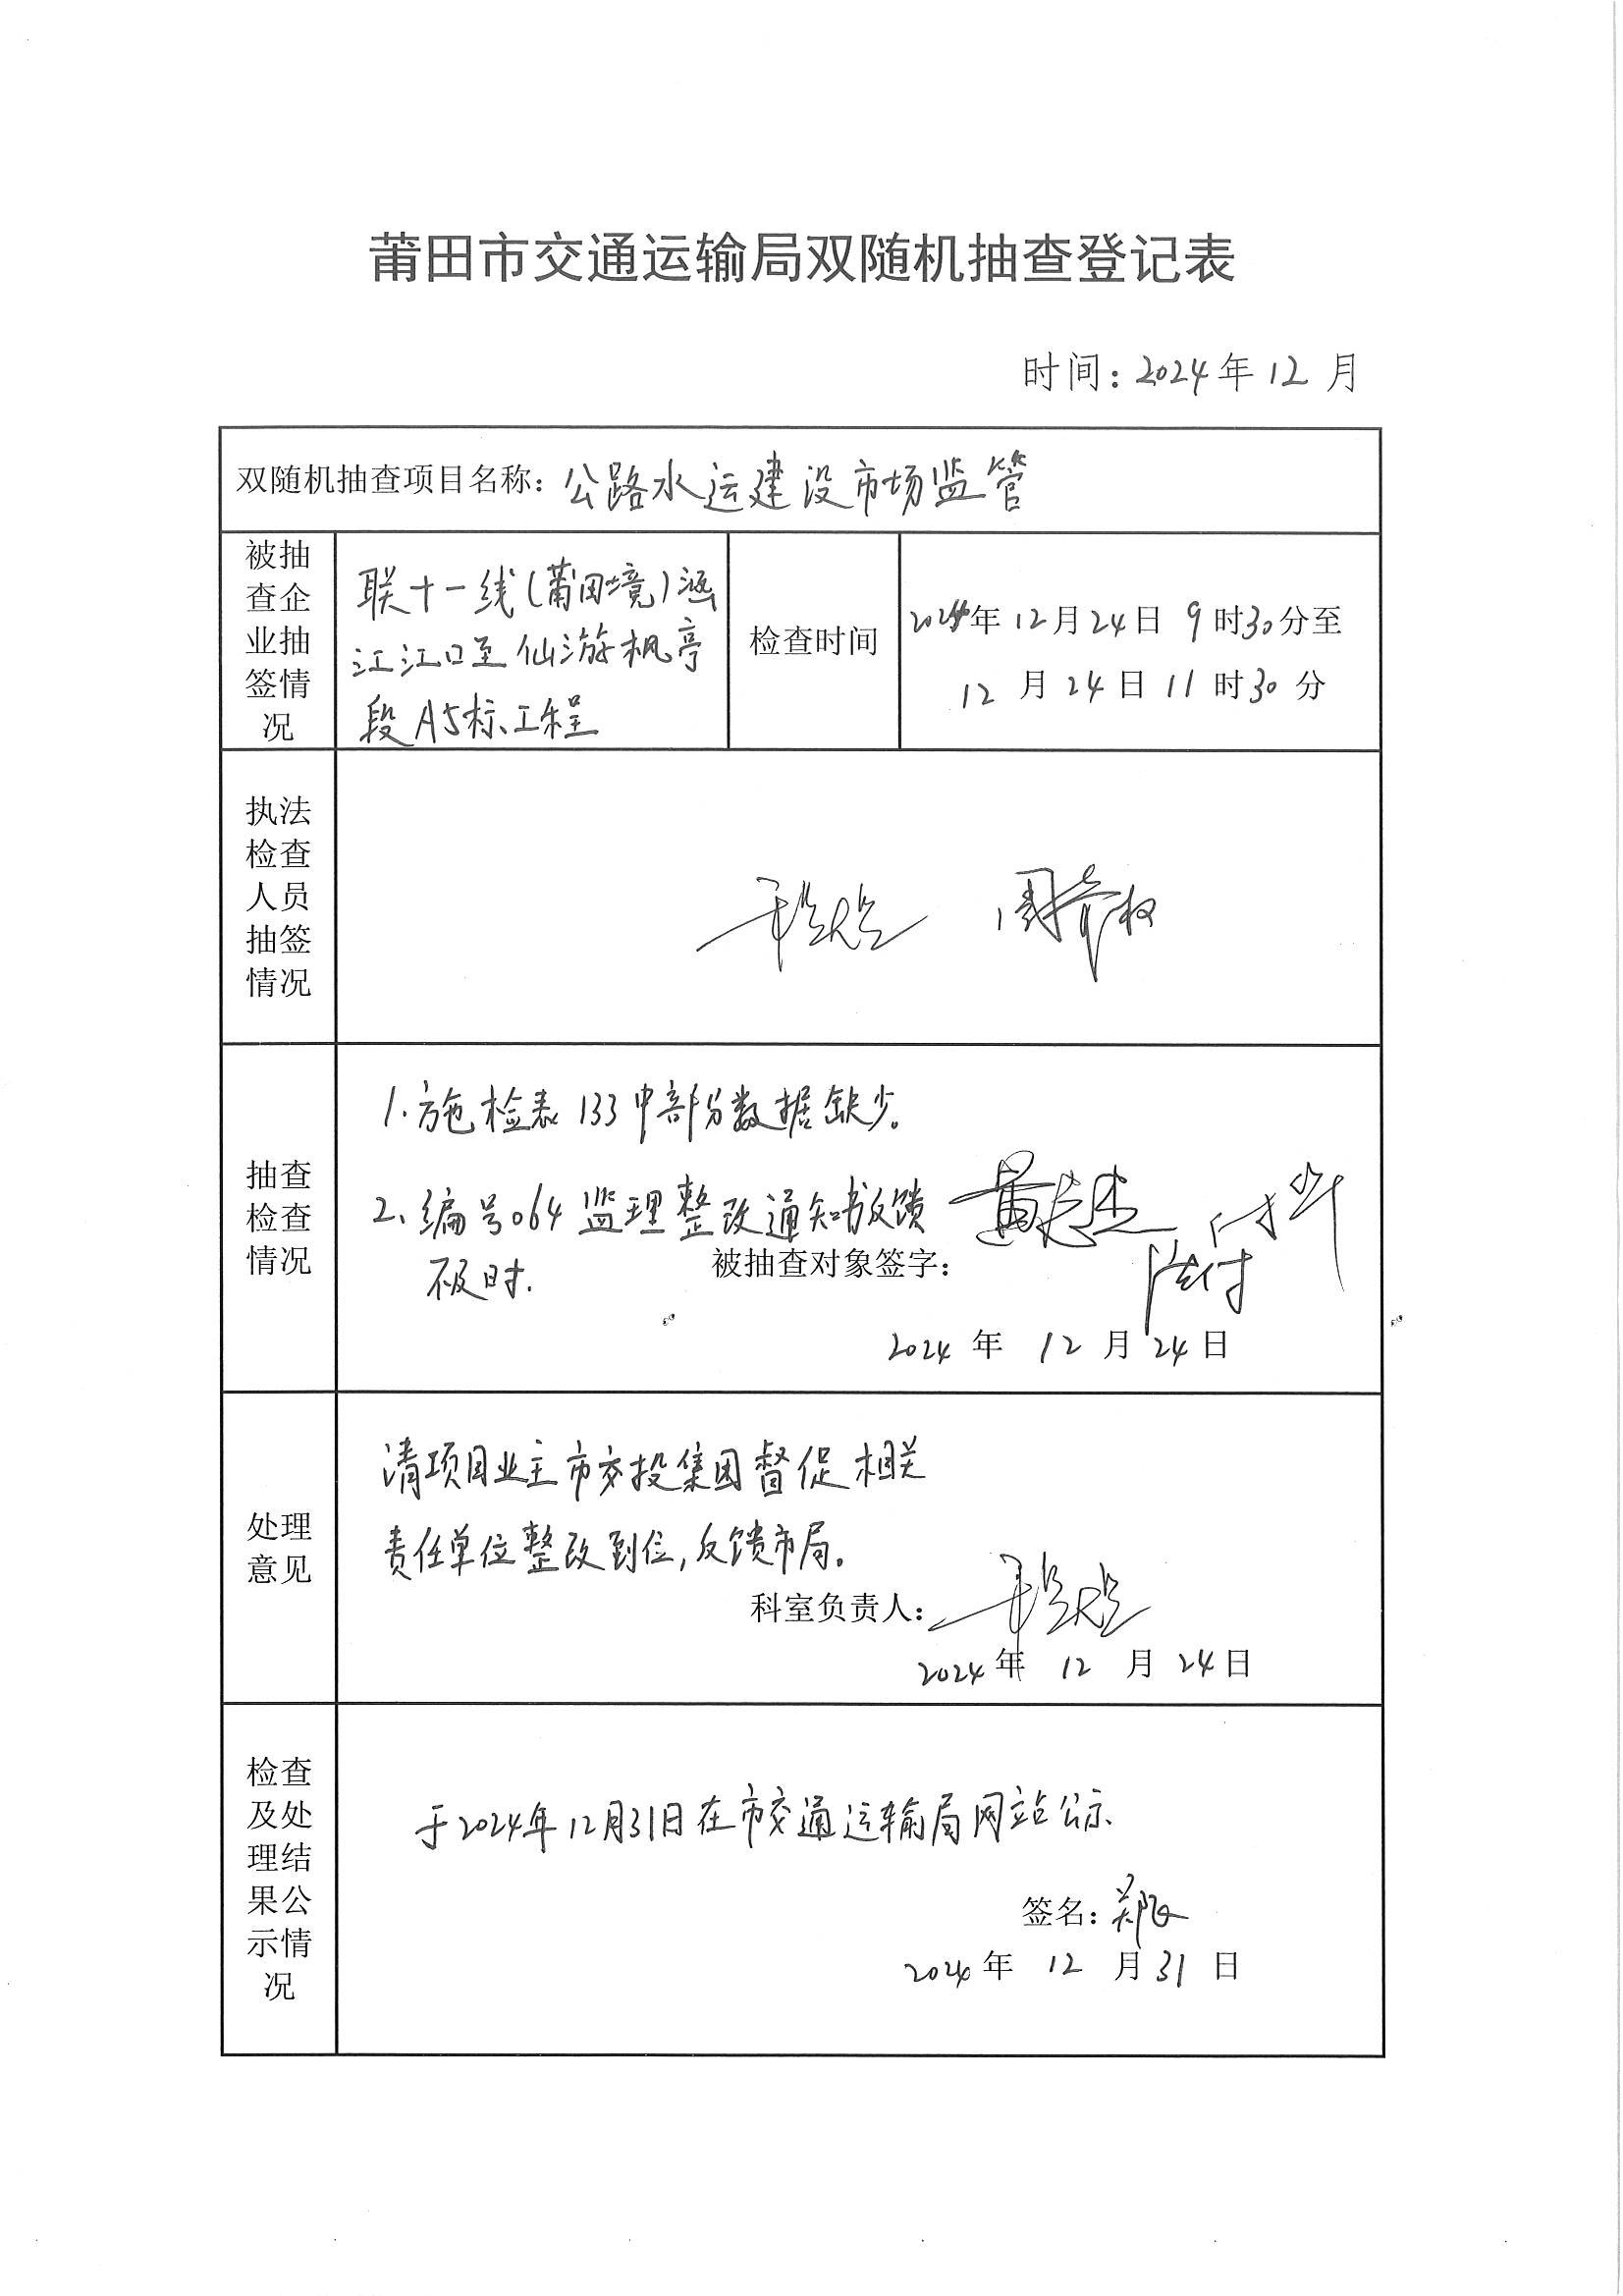 莆田市交通运输局双随机抽查登记表
时间：2024年12月
双随机抽查项目名称：公路水运建设市场监管
被抽
查企
业抽
签情
况
联十一线(莆田境)涵
江江口至仙游枫亭
段A5标工程
检查时间
2024年12月24日9时30分至
12月24日11时30分
执法
检查
人员
抽签
情况
抽查
检查
情况
1.施检表133中部分数据缺少。
2、编号064监理整改通知书反馈
不及时.
被抽查对象签字：黄志杰
2024年12月24日
处理
意见
请项目业主市交投集团督促相关
责任单位整改到位,反馈市局。
科室负责人：
2024年12月24日
检查
及处
理结
果公
示情
况
于2024年12月31日在市交通运输局网站公示
签名：
2024年12月31日